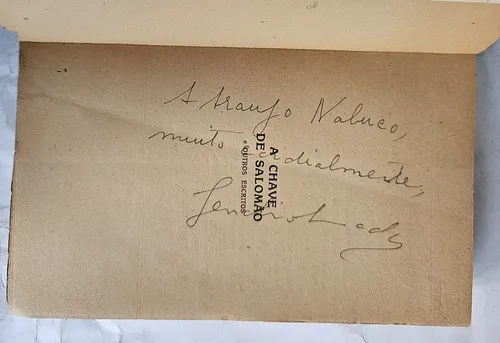 A Araujo Nabuco,
muito cordialmente,
A CHAVE
DE SALOMÃO
e OUTROS ESCRITOS